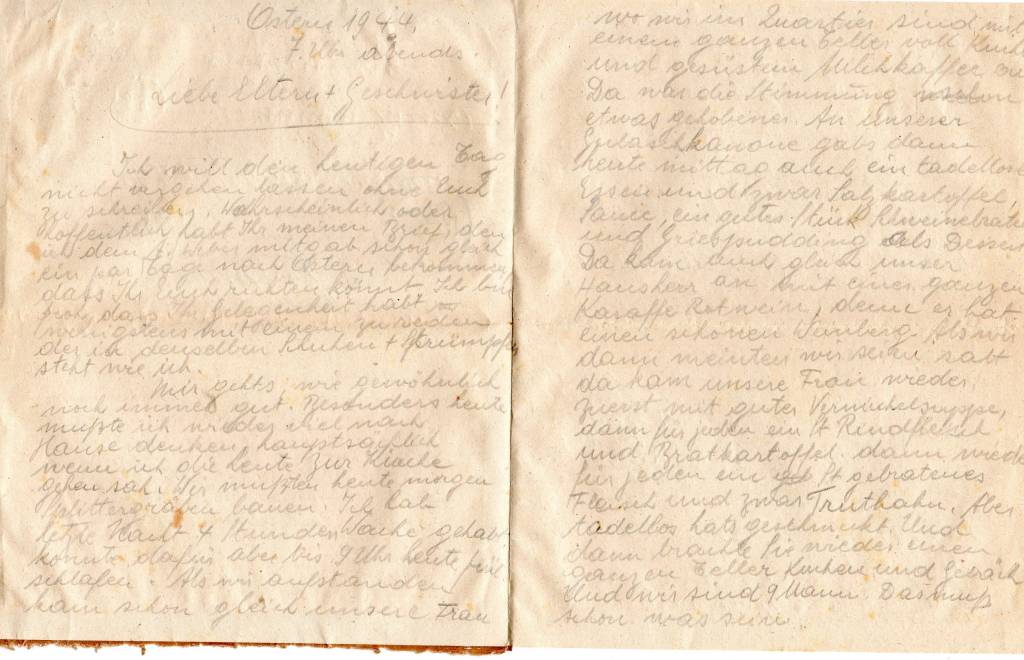 Ostern 1944,
7 Uhr abends.
Liebe Eltern + Geschwister!
Ich will den heutigen Tag
nicht vergehen lassen ohne Euch
zu schreiben. Wahrscheinlich oder
hoffentlich habt Ihr meinen Brief, den
ich dem Weber mitgab schon gleich
ein par Tage nach Ostern bekommen,
dass Ihr Euch richten könnt. Ich bin
froh, dass Ihr Gelegenheit habt
wenigstens mit einem zu reden
der in denselben Schuhen + Strümpfen
steht wie ich.
Mir gehts wie gewöhnlich
noch immer gut. Besonders heute
mußte ich wieder viel nach
Hause denken, hauptsächlich
wenn ich die Leute zur Kirche
gehen sah. Wir mußten heute morgen
Splittergräben bauen. Ich hab
letzte Nacht 4 Stunden Wache gehabt
konnte dafür aber bis 9 Uhr heute früh
schlafen. Als wir aufstanden
kam schon gleich unsere Frau
wo wir im Quartier sind mit
einem ganzen Teller voll Kuchen
und gesüstem Milchkaffee an
Da war die Stimmung schon
etwas gehobener. An unserer
Gulaschkanone gabs dann
heute mittag auch ein tadelloses
Essen und zwar Salzkartoffel,
ein gutes Stück Schweinebraten
und Griespudding als Dessert
Da kam auch gleich unser
Hausherr an mit einer ganzen
Karaffe Rotwein, denn er hat
einen schönen Weinberg. Als wir
dann meinten wir seien satt
da kam unsere Frau wieder.
Zuerst mit guter Vermichelsuppe,
dann für jeden ein St Rindfleisch
und Bratkartoffel. dann wieder
für jeden ein St gebratenes
Fleisch und zwar Truthahn. Aber
tadellos hats geschmeckt. Und
dann brachte Sie wieder einen
ganzen Teller Kuchen und Gebäck
Und wir sind 9 Mann. Das muß
schon was sein.